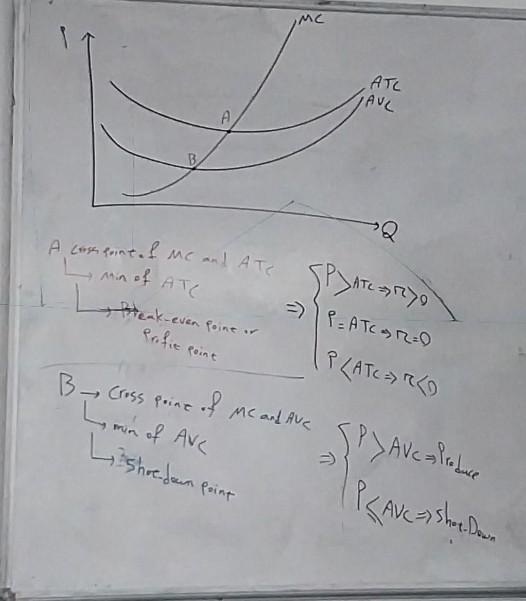 P
MC
ATC
AVC
A
B
Q
A cross point of MC and ATC
min of ATC
Break-even point or
Profit point
⇒ { P > ATC ⇒ π > 0
P = ATC ⇒ π = 0
P < ATC ⇒ π < 0
B → Cross point of MC and AVC
min of AVC
Shot-down point
⇒ { P > AVC ⇒ Produce
P ≤ AVC ⇒ Shot-Down